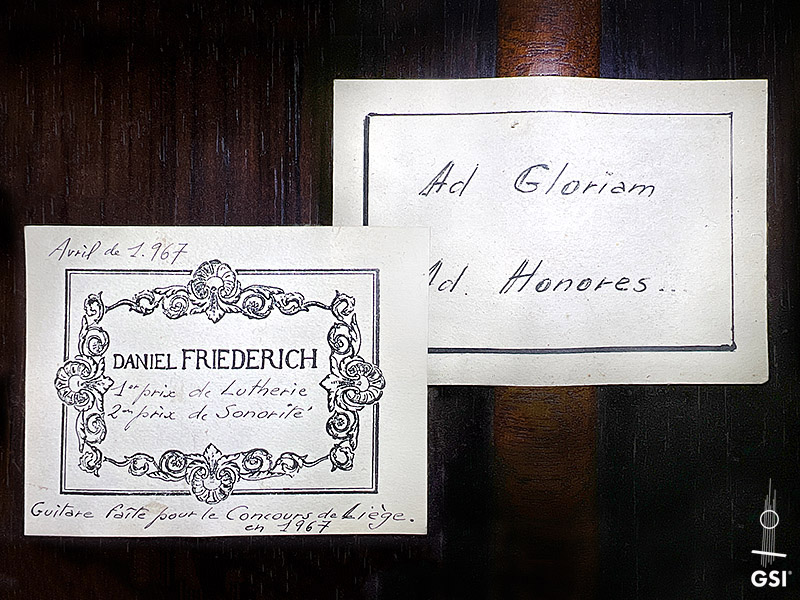 Avril de 1.967
DANIEL FRIEDERICH
1er prix de Lutherie
2me prix de Sonorité
Guitare faite pour le Concours de Liège.
en 1967
Ad Gloriam
Ad. Honores...
GSI